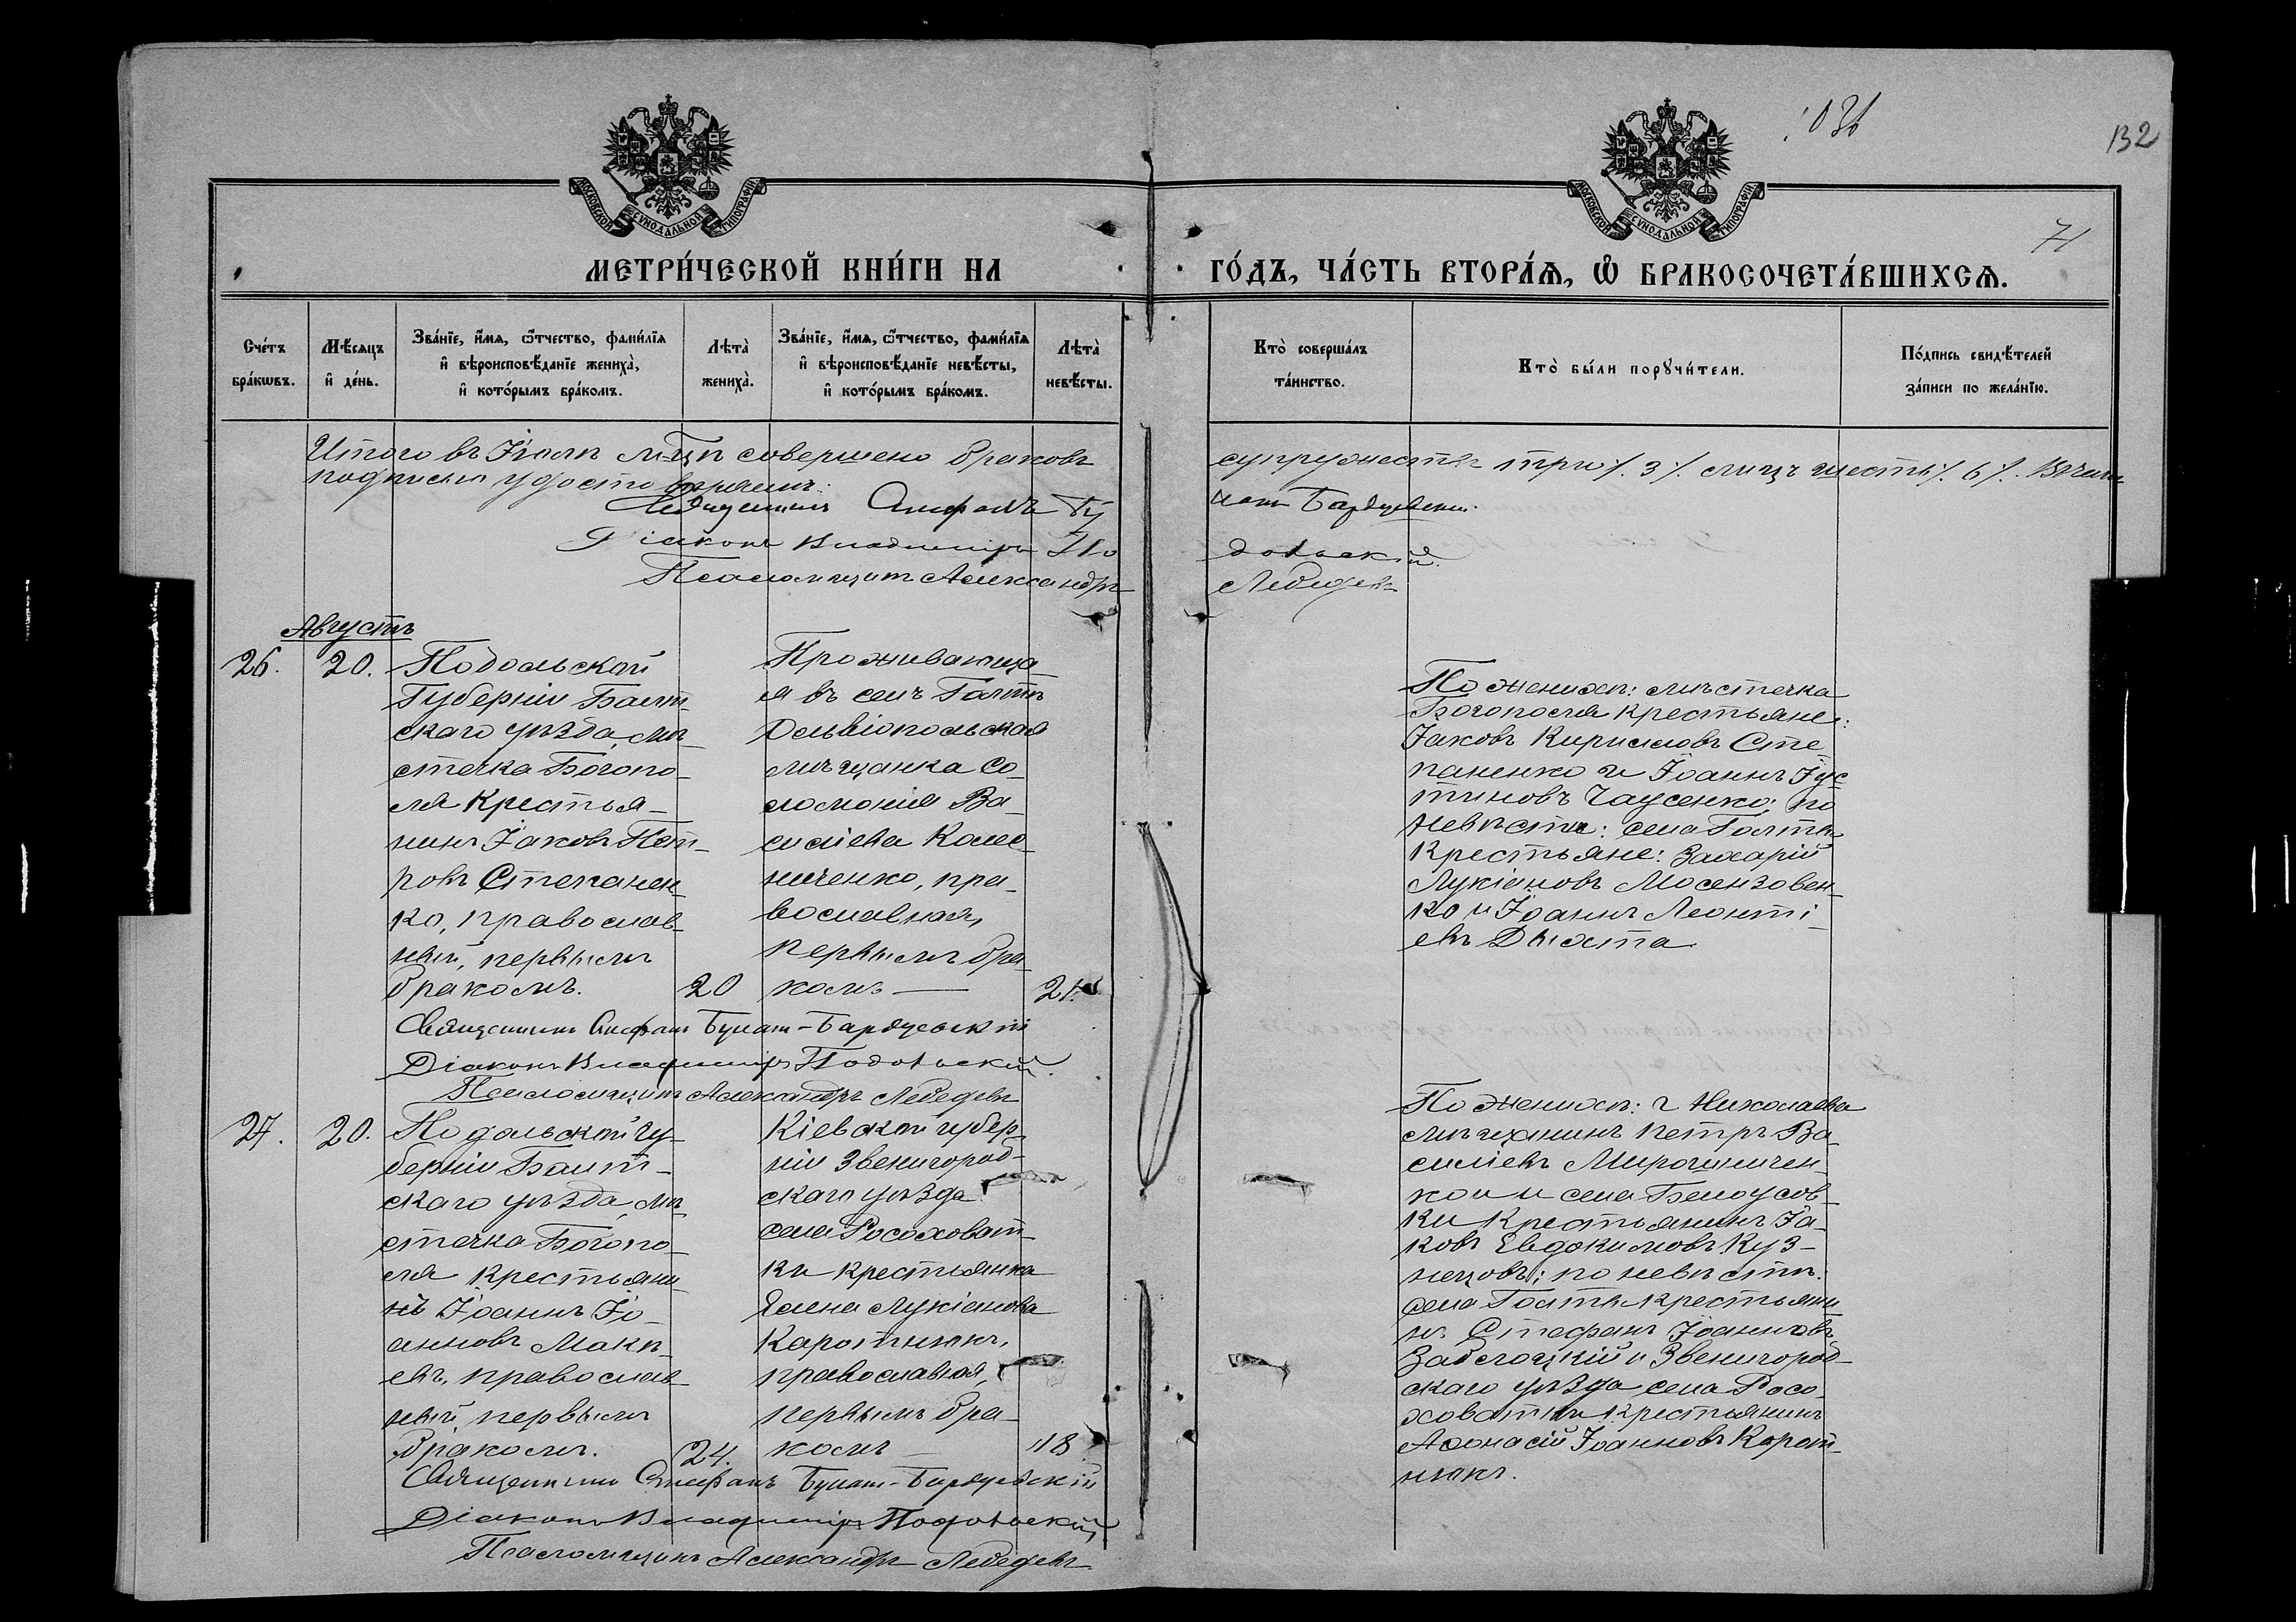 1031
132
71
МОСКОВСКОЙ СУНОДАЛЬНОЙ ТИПОГРАФІИ
МОСКОВСКОЙ СУНОДАЛЬНОЙ ТИПОГРАФІИ
МЕТРИ́ЧЕСКОЙ КНИ́ГИ НА
ГО́ДЪ, ЧА́СТЬ ВТОРА́Ѧ, Ѽ БРАКОСОЧЕТА́ВШИХСѦ.
Сче́тъ
бра́кѡвъ.
Мѣ́сяцъ
и҆ де́нь.
Зва́нїе, и҆́мя, ѻ҆́тчество, фами́лїя
и҆ вѣроисповѣ́данїе жениха̀,
и҆ кото́рымъ бра́комъ.
Лѣта̀
жениха̀.
Зва́нїе, и҆́мя, ѻ҆́тчество, фами́лїя
и҆ вѣроисповѣ́данїе невѣ́сты,
и҆ кото́рымъ бра́комъ.
Лѣта̀
невѣ́сты.
Кто̀ соверша́лъ
та́инство.
Кто̀ бы́ли порꙋчи́тели.
По́дпись свидѣ́телей
за́писи по жела́нїю.
Итого въ Іюлѣ м-цѣ совершено браковъ
супружествъ три /. 3 /. лицъ шесть /. 6 /. В чемъ
подписью удостовѣряемъ:
Священникъ Стефанъ Бу
натъ Бардуевскій
Діаконъ Владиміръ По
дольскій.
Псаломщикъ Александръ
Лебедевъ
Августъ
26.
20.
Подольской
Губерніи Балт-
скаго уѣзда, мѣ-
стечка Богопо-
ля крестья-
нинъ Іаковъ Пет-
ровъ Степанен-
ко, православ-
ный, первымъ
бракомъ.
20
Проживающа
я въ селѣ Голтѣ
Ольвіопольская
мѣщанка Со-
ломонія Ва-
силіева Коле-
ниченко, пра-
вославная,
первымъ бра-
комъ —
21.
По женихѣ: мѣстечка
Богополя крестьяне:
Іаковъ Кирилловъ Сте
паненко и Іоаннъ Іус
тиновъ Чаусенко; по
невѣстѣ: села Голты
крестьяне: Захарій
Лукіановъ Мосензовен-
ко и Іоаннъ Леонті-
евъ Дьяхта
Священникъ Стефанъ Бунат-Бардуевскій
Діаконъ Владиміръ Подольскій.
Псаломщикъ Александръ Лебедевъ
27.
20.
Подольской гу-
берніи Балт-
скаго уѣзда, мѣ-
стечка Богопо-
ля крестьяни
нъ Іоаннъ Іо-
анновъ Макѣ-
евъ, православ-
ный первымъ
бракомъ.
24.
Кіевской губер-
ніи Звенигород-
скаго уѣзда
села Росоховат-
ки крестьянка
Елена Лукіанова
Каротнюкъ,
православная,
первымъ бра-
комъ —
18
По женихѣ: г Николаева
мѣщанинъ Петръ Ва-
силіевъ Мирошничен-
ко и села Белоусов-
ки крестьянинъ Іа-
ковъ Евдокимовъ Куз-
нецовъ; по невѣстѣ:
села Голты крестьяни
нъ Стефанъ Іоанновъ
Заблоцкій и Звенигород-
скаго уѣзда села Росо-
ховатки крестьянинъ
Афонасій Іоанновъ Корот-
нюкъ.
Священникъ Стефанъ Бунат-Бардуевскій
Діаконъ Владиміръ Подольскій
Псаломщикъ Александръ Лебедевъ